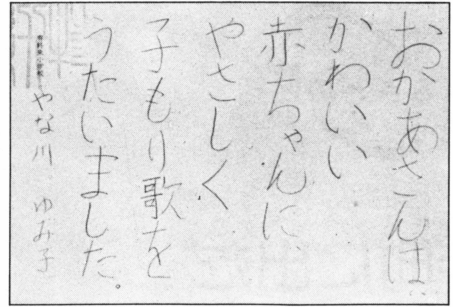 おかあさんは、
かわいい
赤ちゃんに
やさしく
子もり歌を
うたいました。
やな川 ゆみ子